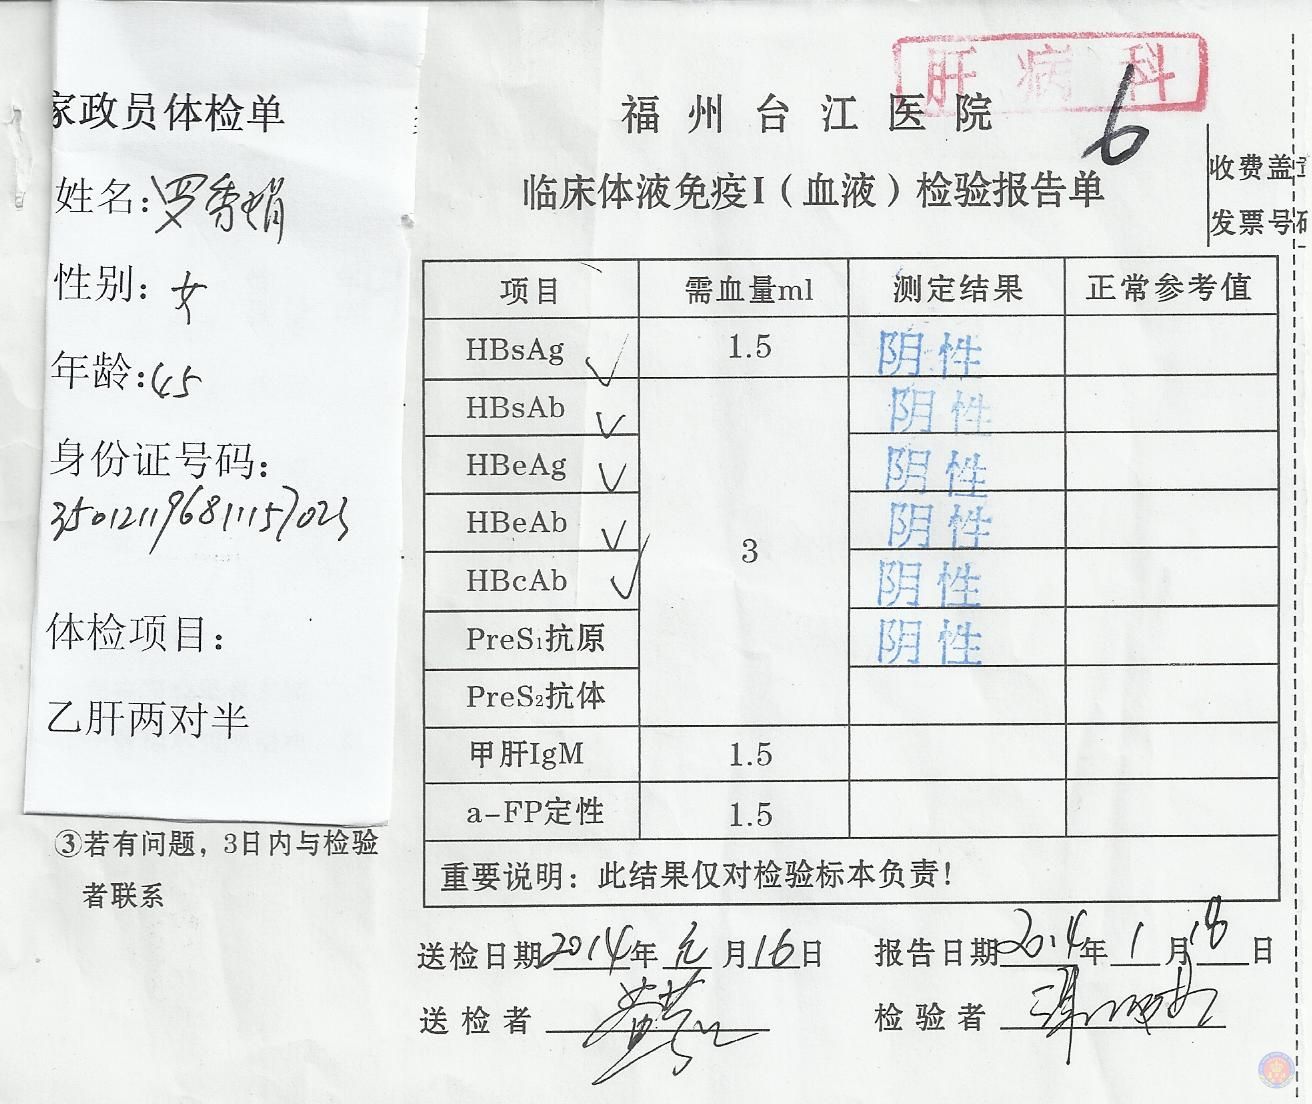 家政员体检单
姓名:罗香娟
性别: 女
年龄:45
身份证号码:
350121196811157023
体检项目:
乙肝两对半
③若有问题，3日内与检验
者联系
肝病科
6
福州台江医院
临床体液免疫I（血液）检验报告单
收费盖
发票号码
项目 需血量ml 测定结果 正常参考值
HBsAg ✓ 1.5 阴性
HBsAb ✓ 阴性
HBeAg ✓ 阴性
HBeAb ✓ 3 阴性
HBcAb ✓ 阴性
PreS₁抗原 阴性
PreS₂抗体
甲肝IgM 1.5
a-FP定性 1.5
重要说明：此结果仅对检验标本负责！
送检日期2014年元月16日 报告日期2014年1月18日
送检者 检验者